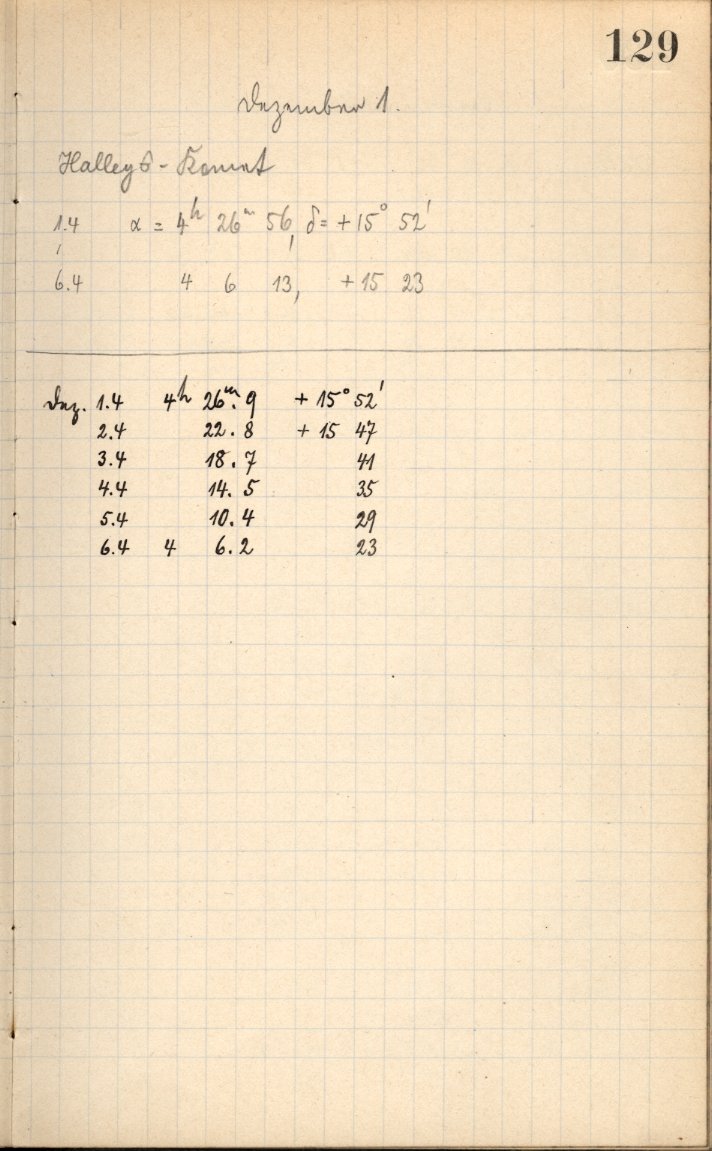 129
Dezember 1.
Halleys - Komet
1.4 α = 4ʰ 26ᵐ 56, δ = +15° 52'
6.4 4 6 13, +15 23
Dez. 1.4 4ʰ 26ᵐ.9 +15° 52'
2.4 22.8 +15 47
3.4 18.7 41
4.4 14.5 35
5.4 10.4 29
6.4 4 6.2 23